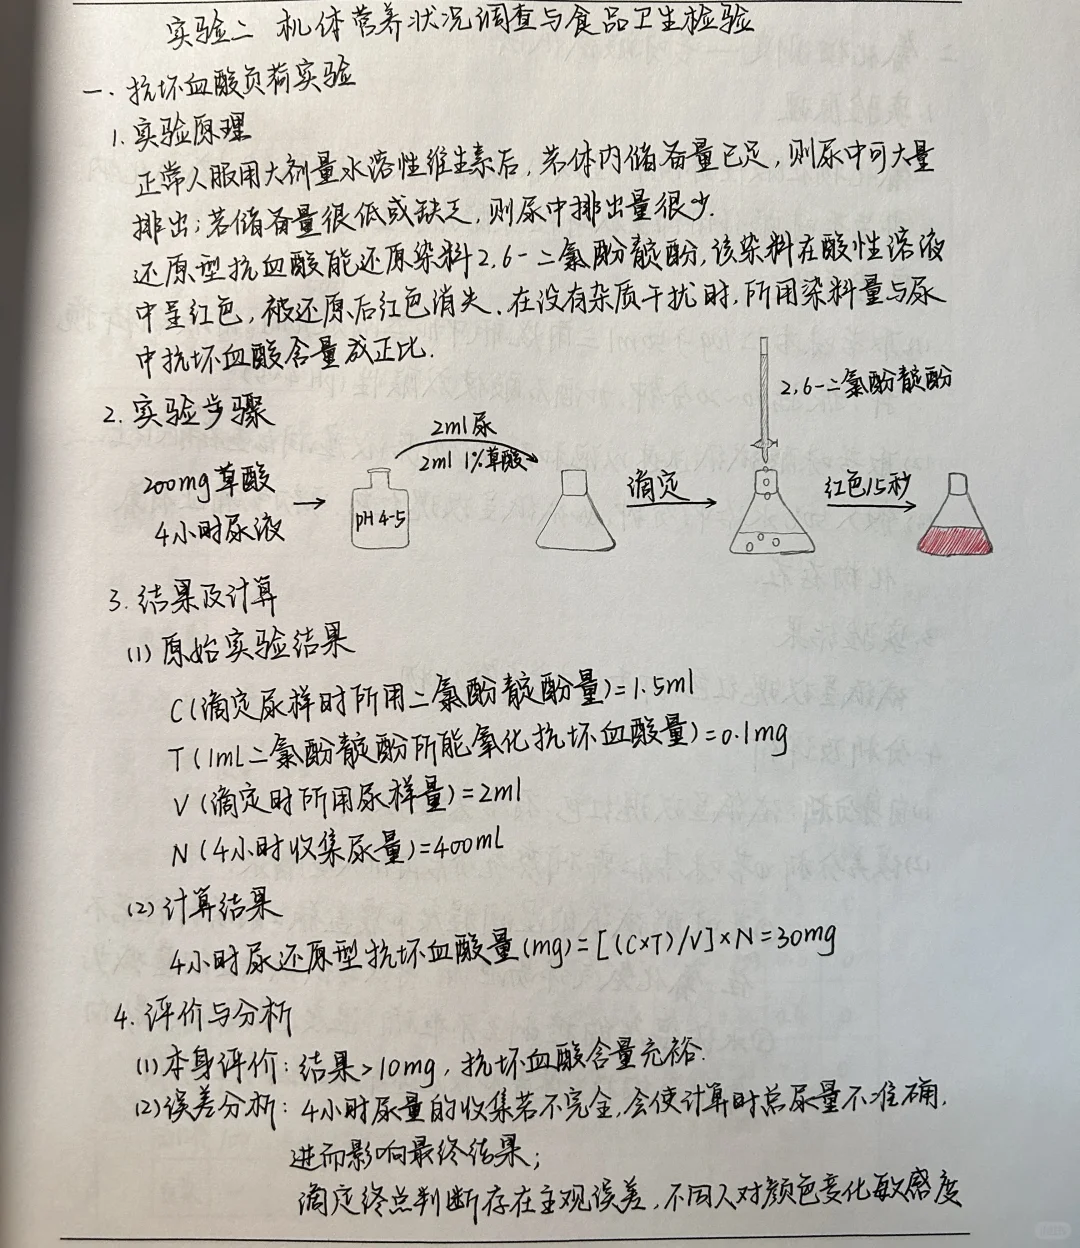 实验二 机体营养状况调查与食品卫生检验
一. 抗坏血酸负荷实验
1. 实验原理
正常人服用大剂量水溶性维生素后,若体内储备量已足,则尿中可大量
排出;若储备量很低或缺乏,则尿中排出量很少.
还原型抗血酸能还原染料2,6-二氯酚靛酚,该染料在酸性溶液
中呈红色,被还原后红色消失.在没有杂质干扰时,所用染料量与尿
中抗坏血酸含量成正比.
2. 实验步骤
200mg草酸
4小时尿液
pH 4-5
2ml尿
2ml 1%草酸
滴定
2,6-二氯酚靛酚
红色15秒
3. 结果及计算
(1) 原始实验结果
C(滴定尿样时所用二氯酚靛酚量)=1.5ml
T(1mL二氯酚靛酚所能氧化抗坏血酸量)=0.1mg
V(滴定时所用尿样量)=2ml
N(4小时收集尿量)=400mL
(2) 计算结果
4小时尿还原型抗坏血酸量(mg)=[(C×T)/V]×N=30mg
4. 评价与分析
(1)本身评价: 结果>10mg, 抗坏血酸含量充裕.
(2)误差分析: 4小时尿量的收集若不完全,会使计算时总尿量不准确,
进而影响最终结果;
滴定终点判断存在主观误差,不同人对颜色变化敏感度